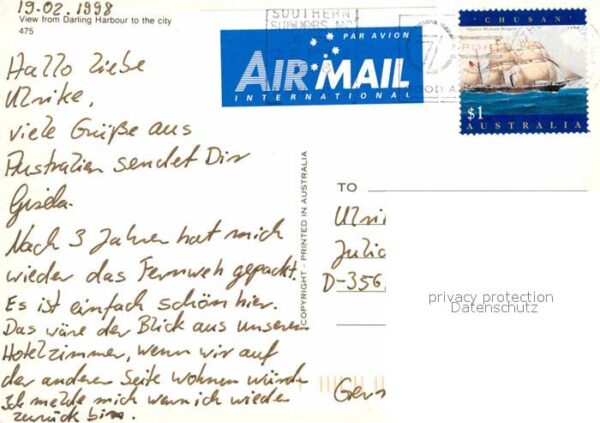 19.02.1998
View from Darling Harbour to the city
475
Hallo liebe
Ulrike,
viele Grüße aus
Australien sendet Dir
Gisela.
Nach 3 Jahren hat mich
wieder das Fernweh gepackt.
Es ist einfach schön hier.
Das wäre der Blick aus unserem
Hotelzimmer, wenn wir auf
der anderen Seite wohnen würden
Ich melde mich wenn ich wieder
zurück bin.
SOUTHERN
SUBURBS MC
PAR AVION
AIR MAIL
INTERNATIONAL
CHUSAN
$1
AUSTRALIA
COPYRIGHT - PRINTED IN AUSTRALIA
TO
Ulri
Julia
D-356
privacy protection
Datenschutz
Ger